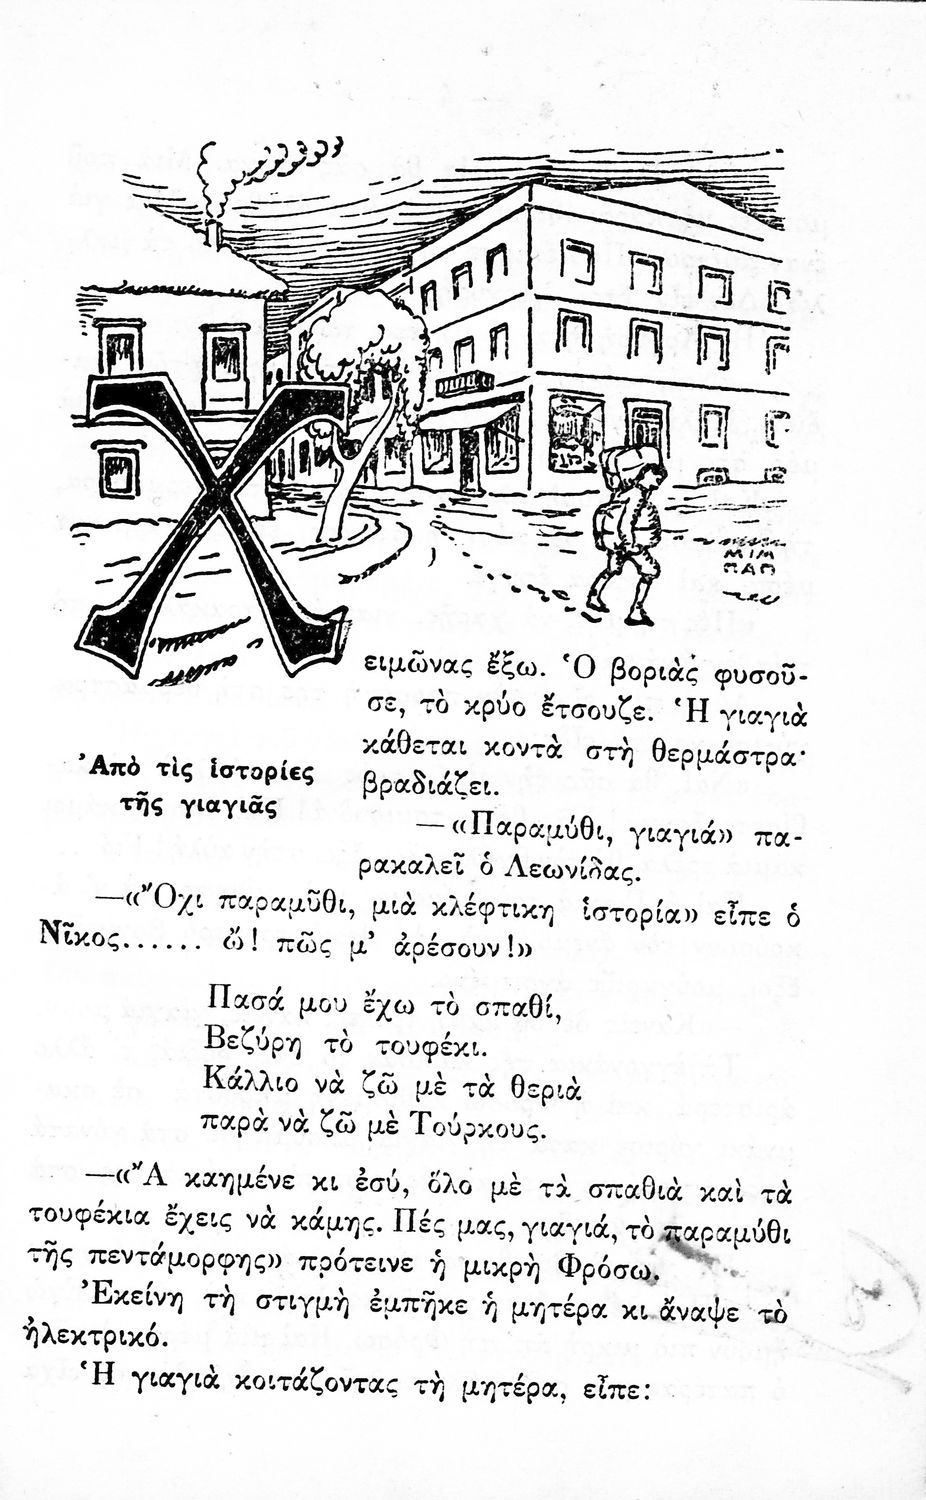 ΜΙΜ
ΠΑΠ
Χειμῶνας ἔξω. Ὁ βοριὰς φυσοῦ-
σε, τὸ κρύο ἔτσουζε. Ἡ γιαγιὰ
κάθεται κοντὰ στὴ θερμάστρα·
βραδιάζει.
Ἀπὸ τὶς ἱστορίες
τῆς γιαγιᾶς
—«Παραμύθι, γιαγιά» πα-
ρακαλεῖ ὁ Λεωνίδας.
—«Ὄχι παραμῦθι, μιὰ κλέφτικη ἱστορία» εἶπε ὁ
Νῖκος...... ὤ! πῶς μ’ ἀρέσουν!»
Πασά μου ἔχω τὸ σπαθί,
Βεζύρη τὸ τουφέκι.
Κάλλιο νὰ ζῶ μὲ τὰ θεριὰ
παρὰ νὰ ζῶ μὲ Τούρκους.
—«Ἄ καημένε κι ἐσύ, ὅλο μὲ τὰ σπαθιὰ καὶ τὰ
τουφέκια ἔχεις νὰ κάμης. Πές μας, γιαγιά, τὸ παραμύθι
τῆς πεντάμορφης» πρότεινε ἡ μικρὴ Φρόσω.
Ἐκείνη τὴ στιγμὴ ἐμπῆκε ἡ μητέρα κι ἄναψε τὸ
ἠλεκτρικό.
Ἡ γιαγιὰ κοιτάζοντας τὴ μητέρα, εἶπε: